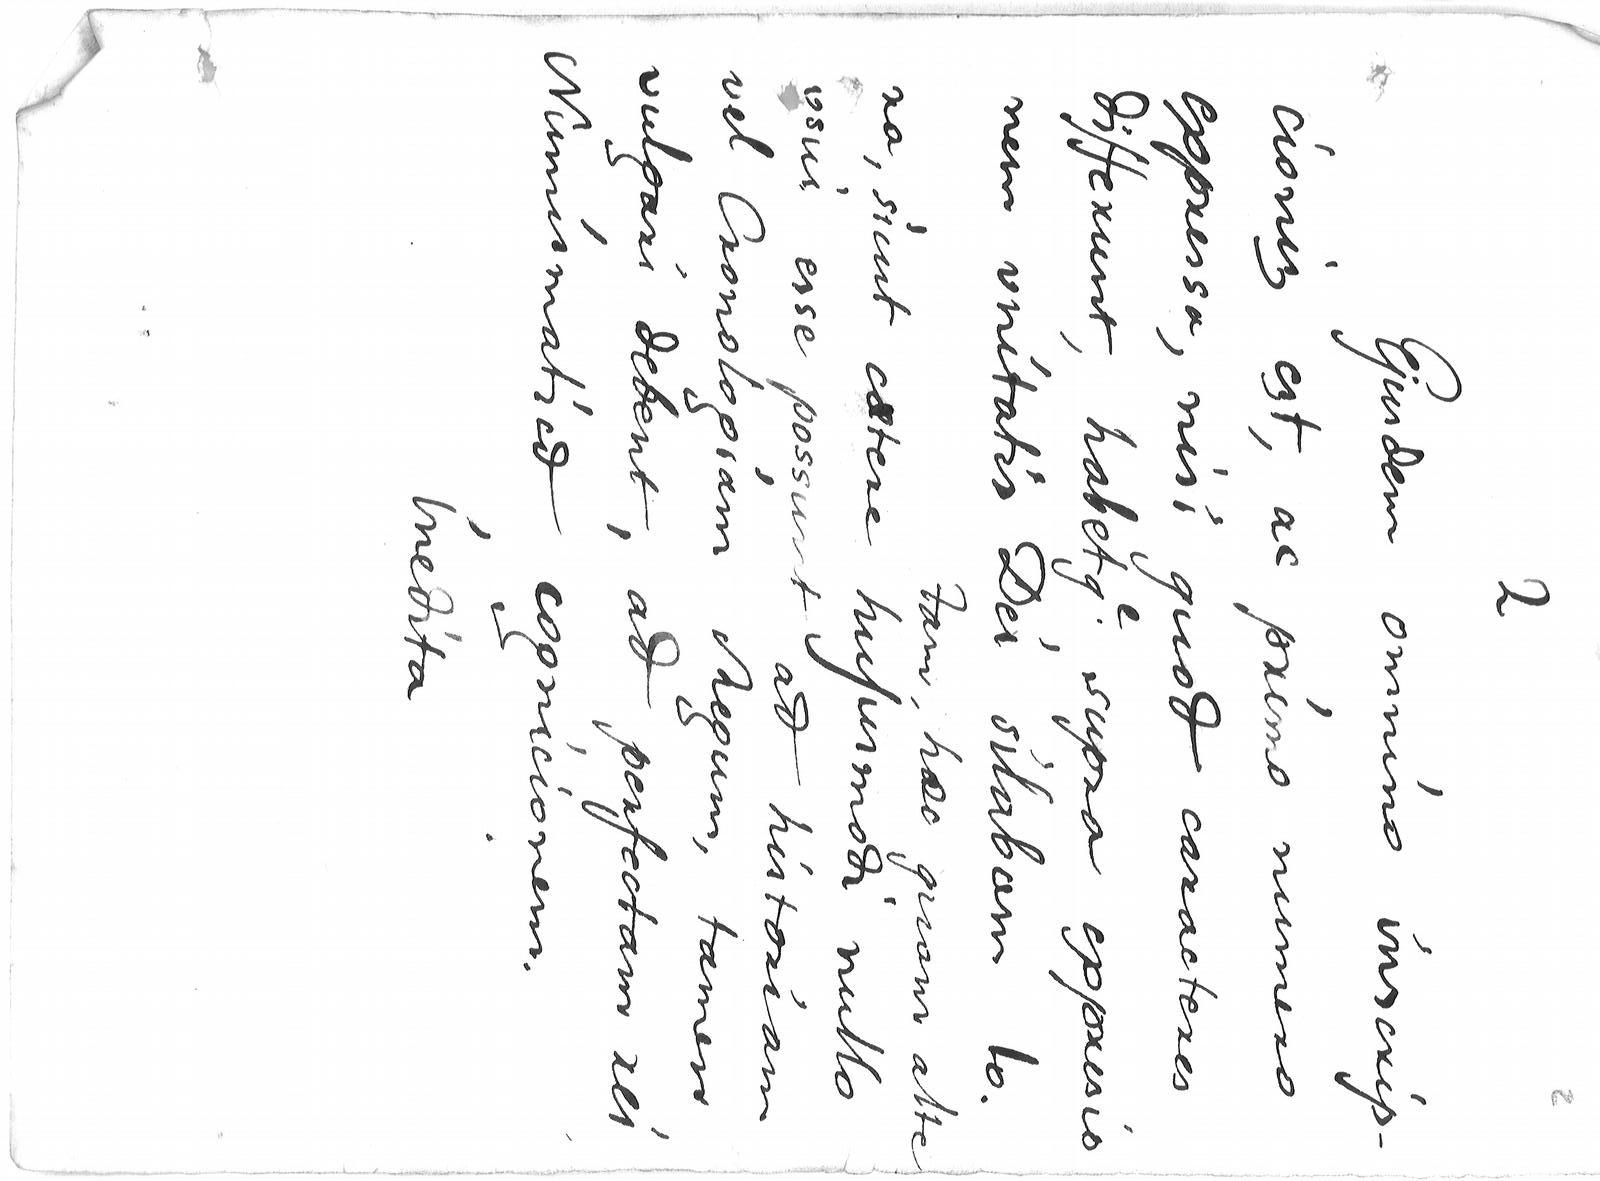 2
Ejusdem omnino inscrip-
cionis est, ac primo numero
expressa, nisi quod caracteres
differunt, habetq̃ supra expresis
nem unitatis Dei silabam bo.
tam, hæc quam alte
ra, sicut cætere hujusmodi nullo
usui esse possunt ad historiam
vel Cronologiam Regum, tamen
vulgari debent, ad perfectam rei
Numismaticæ cognicionem.
inedita
2